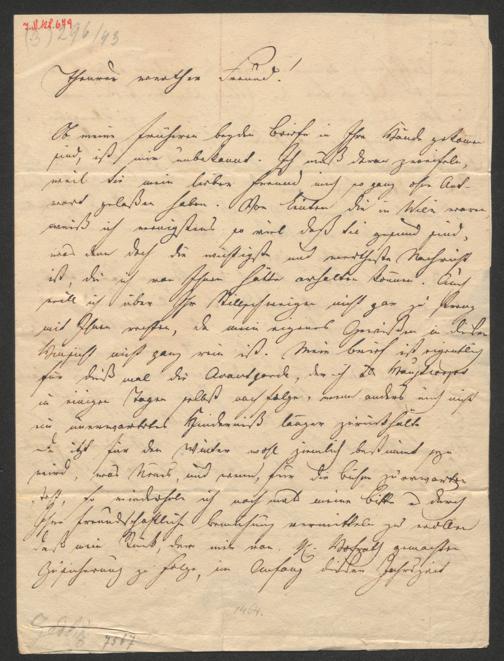 J.N. 128.649
(3) 296/43
Theurer werther Freund!
Ob meine früheren beyden Briefe in Ihre Hände gekommen
sind, ist mir unbekannt. Ich muß daran zweifeln,
weil Sie mein lieber Freund mich so ganz ohne Ant-
wort gelaßen haben. Von Leuten die in Wien waren
weiß ich wenigstens so viel daß Sie gesund sind,
was denn doch die wichtigste und wertheste Nachricht
ist, die ich von Ihnen hätte erhalten können. Auch
will ich über Ihr Stillschweigen nicht gar zu streng
mit Ihnen rechten, da mein eigenes Gewißen in dieser
Hinsicht nicht ganz rein ist. Mein Brief ist eigentlich
für dieß mal die Avantgarde, der ich
in einigen Tagen selbst nachfolge, wenn anders mich nicht
ein unerwartetes Hinderniß länger zurückhält.
itzt für den Winter wohl ziemlich bestimmt
wird, was Neues, und wann, für die Bühne zu erwarten
ist, so wiederhole ich noch mals meine Bitte durch
Ihre freundschaftliche Bemühung vermitteln zu wollen
daß mein Stück der mir von H. Hofrath gemachten
Zusicherung zu Folge, im Anfang dieser Jahrszeit
1464.
Zedlitz
7567